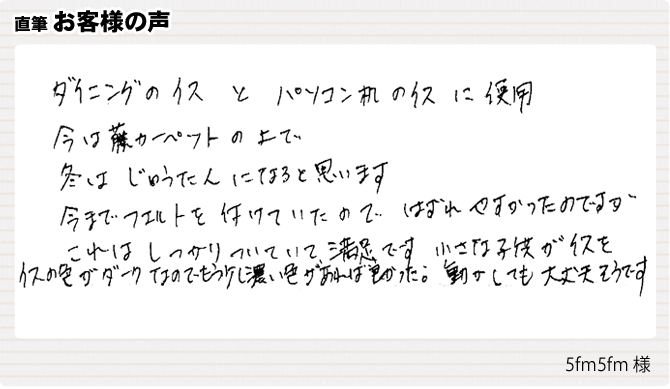 直筆 お客様の声
ダイニングのイス と パソコン机のイス に 使用
今は藤カーペットの上で
冬は じゅうたん になると思います
今までフエルトを付けていたので はずれやすかったのですが
これは しっかりついていて、満足です 小さな子供がイスを
イスの色がダークなのでもう少し濃い色があれば良かった。 動かしても 大丈夫そうです
5fm5fm 様